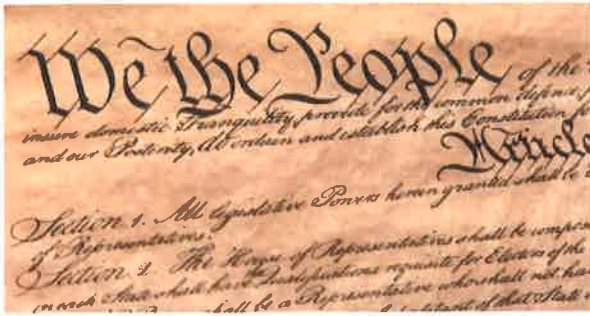 We the People of the
insure domestic Tranquility, provide for the common defence,
and our Posterity, do ordain and establish this Constitution f
Article
Section 1. All legislative Powers herein granted shall be
of Representatives.
Section 2. The House of Representatives shall be compos
in each State shall have Qualifications requisite for Electors of the
shall be a Representative who shall not ha
of that State